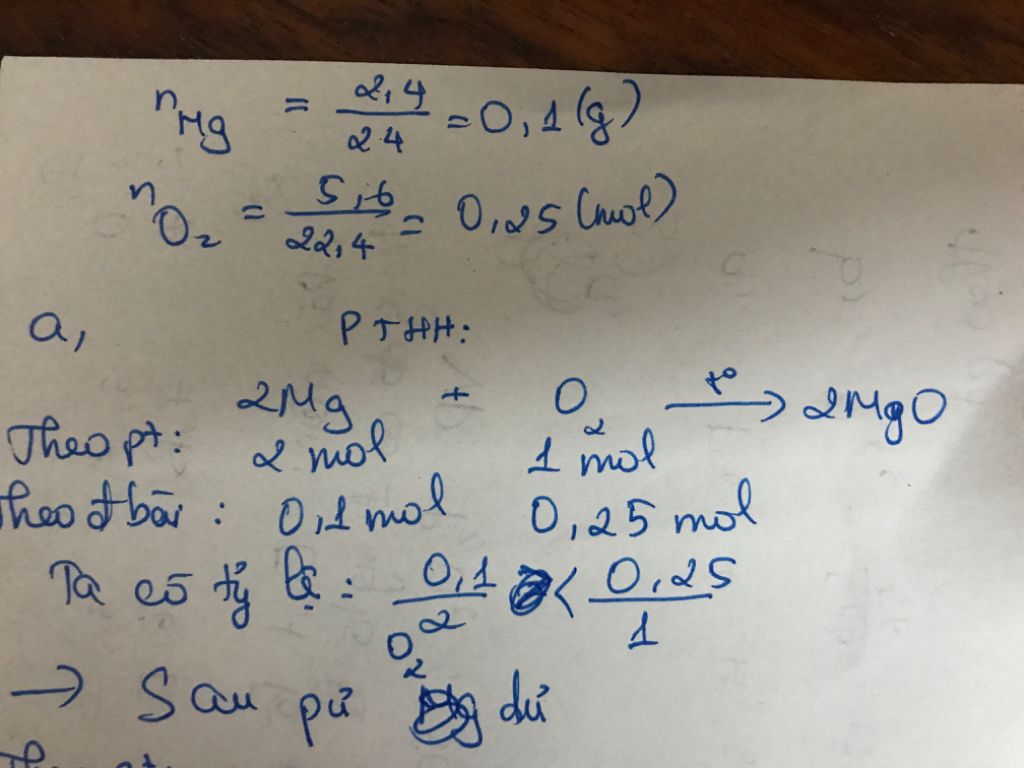 n Mg = 2,4 / 24 = 0,1 (g)
n O₂ = 5,6 / 22,4 = 0,25 (mol)
a, PTHH:
2Mg + O₂ —t°→ 2MgO
Theo pt: 2 mol 1 mol
Theo đ bài : 0,1 mol 0,25 mol
Ta có tỷ lệ : 0,1 / 2 < 0,25 / 1
→ Sau pứ O₂ dư